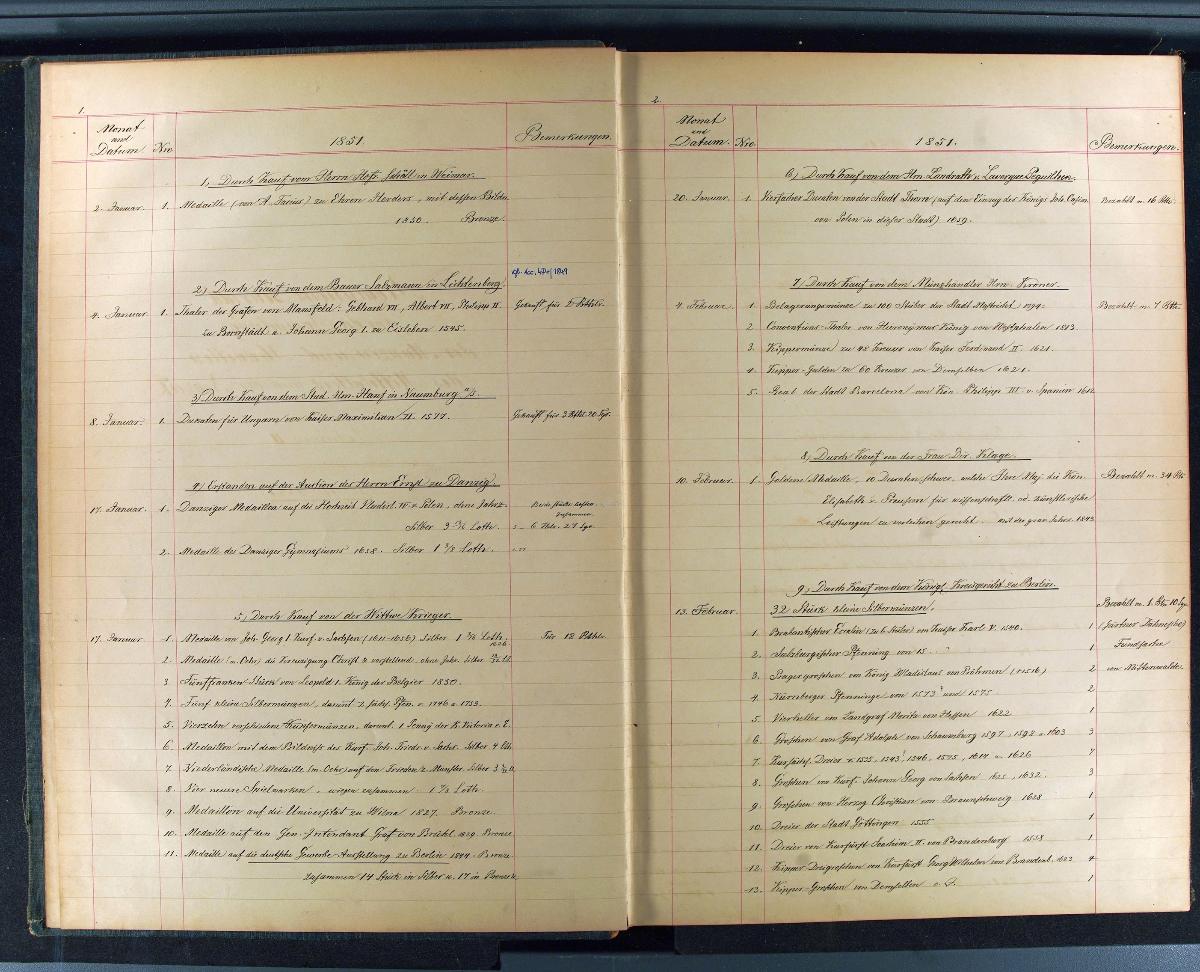 1.
Monat und Datum. Nro 1851. Bemerkungen.
1, Durch Kauf vom Herrn Hofr. Schöll in Weimar.
2. Januar. 1. Medaille (von A. Facius) zu Ehren Herders, mit dessen Bilde
1850. Bronze.
cf. Acc. 1849
2, Durch Kauf von dem Bauer Salzmann in Lichtenberg
4. Januar 1. Thaler der Grafen von Mansfeld: Gebhard VII, Albert VII, Philipp II. Gekauft für 2 Rthlr.
zu Bornstädt u. Johann Georg I. zu Eisleben 1545.
3, Durch Kauf von dem Stud. Hrn. Stauf in Naumburg a/S.
8. Januar. 1. Dukaten für Ungarn von Kaiser Maximilian II. 1577. Gekauft für 3 Rthlr. 20 Sgr.
4, Erstanden auf der Auction des Herrn Ernst zu Danzig.
17. Januar 1. Danziger Medaillon auf die Hochzeit Vladisl. IV. v. Polen, ohne Jahrz. Beide Stücke kosten zusammen
Silber 3 Loth. 6 Thlr. 27 Sgr.
2. Medaille des Danziger Gymnasiums 1658. Silber 1 Loth.
5, Durch Kauf von der Wittwe Krieger.
17. Januar 1. Medaille von Joh. Georg I. Kurf. v. Sachsen (1611-1656) Silber 1 Loth. Für 12 Rthlr.
1626
2. Medaille (m. Oehr) die Kreuzigung Christi vorstellend, ohne Jahr. Silber
3. Fünffranken Stück von Leopold I. König der Belgier 1850.
4. Fünf kleine Silbermünzen, darunt. 2 sächs. Pfen. v. 1746 u. 1753.
5. Vierzehn verschiedene Kupfermünzen, darunt. 1 Penny der K. Victoria v. E.
6. Medaillon mit dem Bildniss des Kurf. Joh. Friedr. v. Sachs. Silber 4 Loth
7. Niederländische Medaille (m. Oehr) auf den Frieden z. Münster, Silber 3
8. Vier neuere Spielmarken, wiegen zusammen 1 Loth.
9. Medaillon auf die Universität zu Wilna 1827. Bronze.
10. Medaille auf den Gen.-Intendant Graf von Brühl 1829. Bronze
11. Medaille auf die deutsche Gewerbe-Ausstellung zu Berlin 1844. Bronze
Zusammen 14 Stück in Silber u. 17 in Bronze
2.
Monat und Datum. Nro 1851. Bemerkungen.
6, Durch Kauf von dem Hrn. Landrath v. Lavergne Peguilhen.
20. Januar 1. Vierfacher Ducaten von der Stadt Thorn (auf den Einzug des Königs Joh. Casim. Bezahlt m. 16 Rthlr.
von Polen in dieser Stadt) 1659.
7, Durch Kauf von dem Münzhändler Hrn. Kröner.
4. Februar 1. Belagerungsmünze zu 100 Stüber der Stadt Mastricht 1794. Bezahlt m. 7 Rthlr.
2. Conventions-Thaler von Hieronymus König von Westphalen 1813.
3. Kippermünze zu 48 Kreuzer von Kaiser Ferdinand II. 1621.
4. Kipper-Gulden zu 60 Kreuzer von Demselben 1621.
5. Real der Stadt Barcelona von Kön. Philipp III v. Spanien 1612
8, Durch Kauf von der Frau Dir. Klage.
10. Februar. 1. Goldene Medaille, 10 Ducaten schwer, welche Ihre Maj. die Kön. Bezahlt m. 34 Rthlr.
Elisabeth v. Preussen für wissenschaftl. od. künstlerische
Leistungen zu verleihen geruht. 1843
9, Durch Kauf von dem Königl. Kreisgericht zu Berlin.
13. Februar. 32 Stück kleine Silbermünzen. Bezahlt m. 1 Rthr 10 Sgr.
1. Brabantischer Escalin (zu 6 Stüber) von Kaiser Karl V. 1540. 1 (Gärtner Dahnsche)
2. Salzburgischer Pfenning von 15 1 Fundsache
3. Pragergroschen von König Wladislaus von Böhmen († 1516) 2 von Mittenwalde.
4. Nürnberger Pfenninge von 1573 und 1575 2
5. Vierheller von Landgraf Moritz von Hessen 1622 1
6. Groschen von Graf Adolph von Schaumburg 1597. 1598 u. 1603 3
7. Kursächs. Dreier v. 1535, 1543, 1546, 1575, 1614 u. 1626 7
8. Groschen von Kurf. Johann Georg von Sachsen 1625, 1632. 3
9. Groschen von Herzog Christian von Braunschweig 1628 1
10. Dreier der Stadt Göttingen 1555 1
11. Dreier von Kurfürst Joachim II. von Brandenburg 1558 1
12. Kipper Dreigroschen von Kurfürst Georg Wilhelm von Brandenb. 1623 4
13. Kipper-Groschen von Demselben o. J. 1